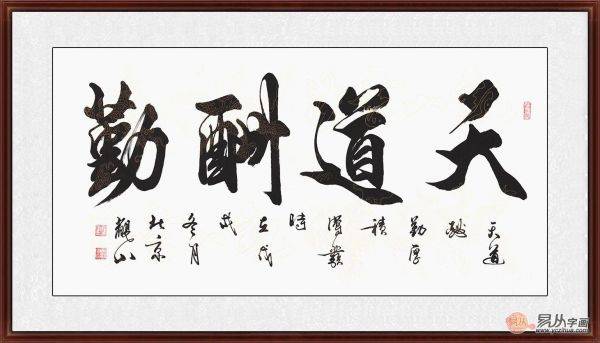 天道酬勤
天道
酬
勤厚
積
薄發
時
在戊
戌
冬月
北京
易从字画
www.yczihua.com